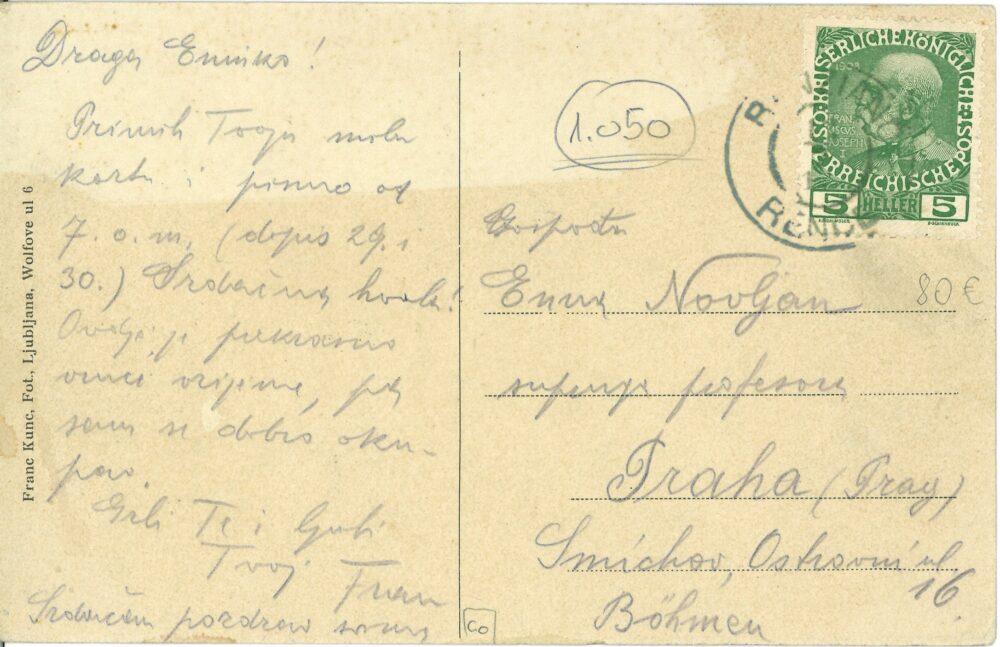 Draga Enniko!
Primih Tvoju milu
kartu i pismo od
7. o. m. (dopis 29. i
30.) Srdačna hvala!
Ovdje je prekrasno
vruće vrijeme, pa
sam se dobro oku-
pao.
Grli Te i ljubi
Tvoj Fran
Srdačan pozdrav svima
Franc Kunc, Fot., Ljubljana, Wolfove ul 6
1.050
KAISERLICHE KÖNIGLICHE
ÖSTERREICHISCHE POST
1908
FRANCISCUS JOSEPH I
5 HELLER 5
RENČE
80 €
Gospođa
Enna Novljan
supruga profesora
Praha (Prag)
Smíchov, Ostrovní ul
16.
Böhmen
CO